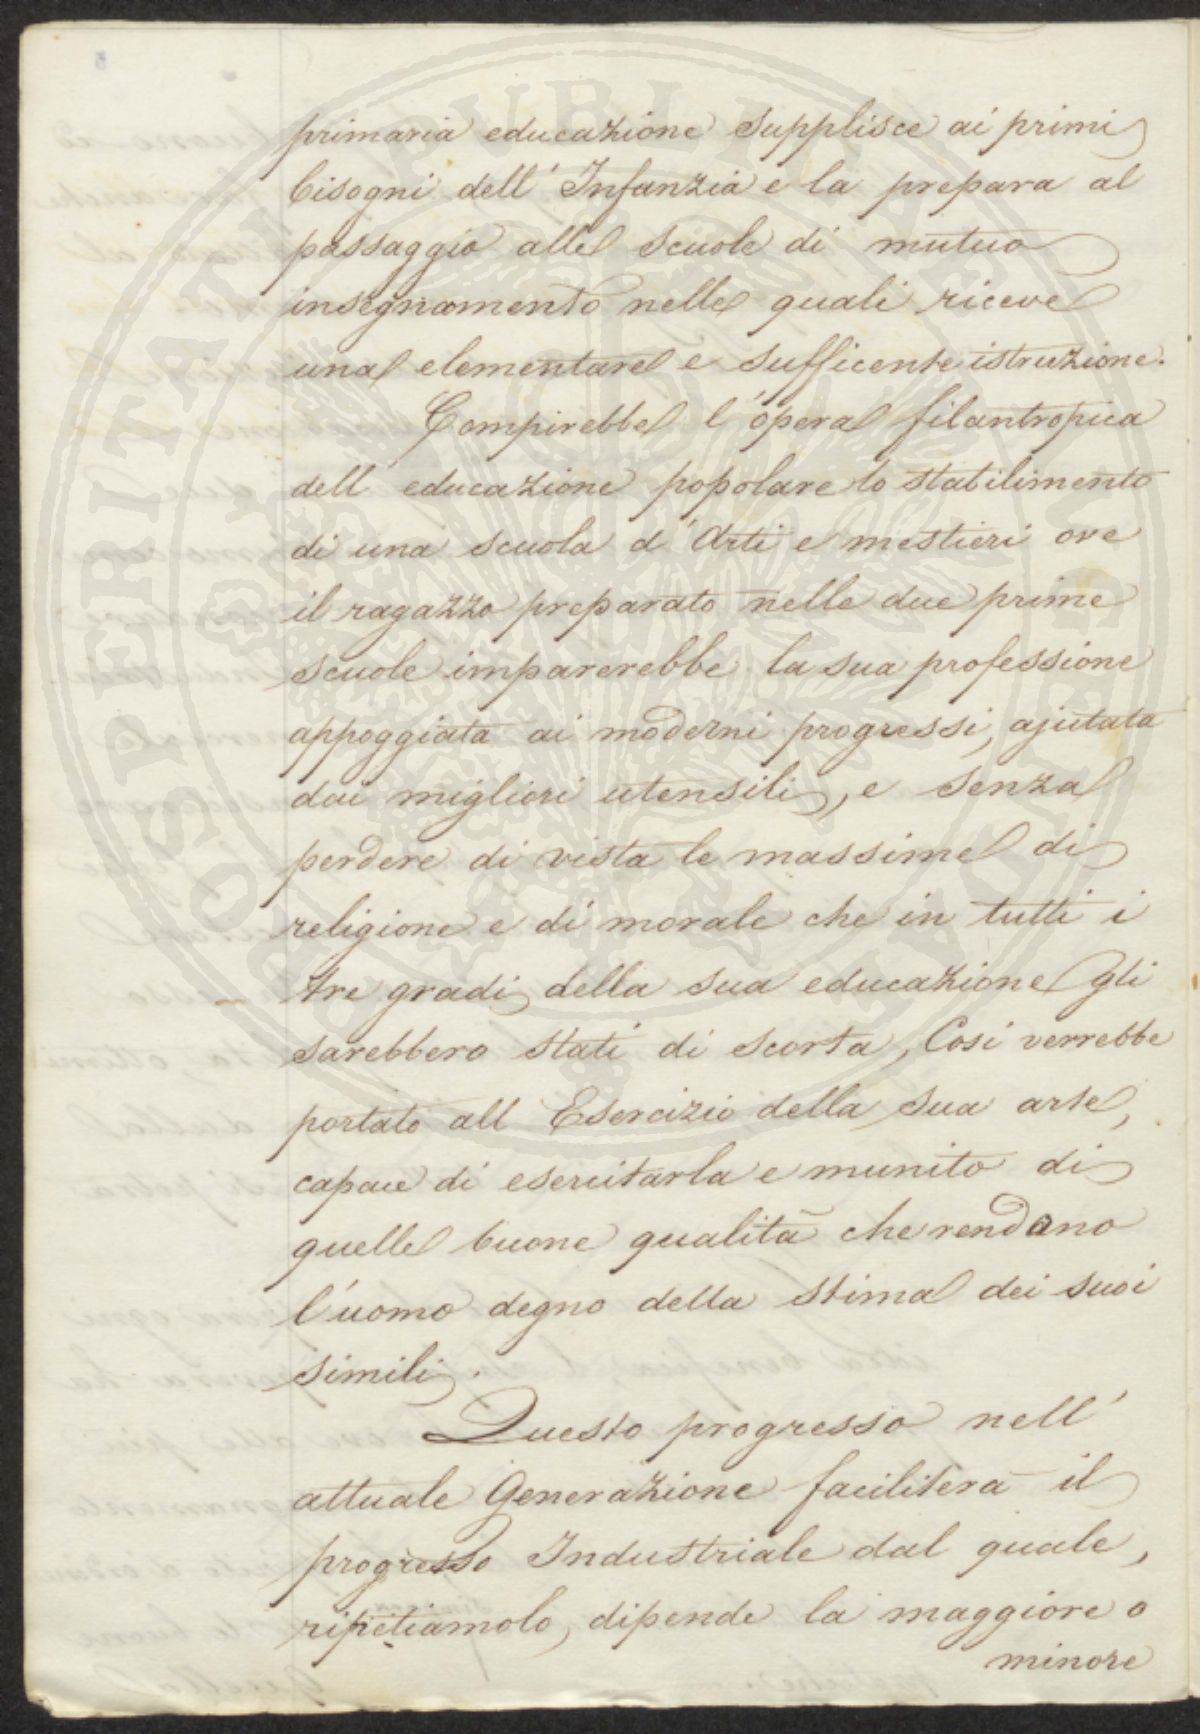 primaria educazione supplisce ai primi
bisogni dell' Infanzia e la prepara al
passaggio alle scuole di mutuo
insegnamento nelle quali riceve
una elementare e sufficente istruzione.
Compirebbe l'opera filantropica
dell' educazione popolare lo stabilimento
di una scuola d'Arti e mestieri ove
il ragazzo preparato nelle due prime
scuole imparerebbe la sua professione
appoggiata ai moderni progressi, ajutata
dai migliori utensili, e senza
perdere di vista le massime di
religione e di morale che in tutti i
tre gradi della sua educazione gli
sarebbero stati di scorta, Così verrebbe
portato all Esercizio della sua arte,
capace di esercitarla e munito di
quelle buone qualità che rendano
l'uomo degno della stima dei suoi
simili.
Questo progresso nell'
attuale Generazione faciliterà il
progresso Industriale dal quale,
ripetiamolo, dipende la maggiore o
minore
PROSPERITATI PUBLICAE AUGENDAE